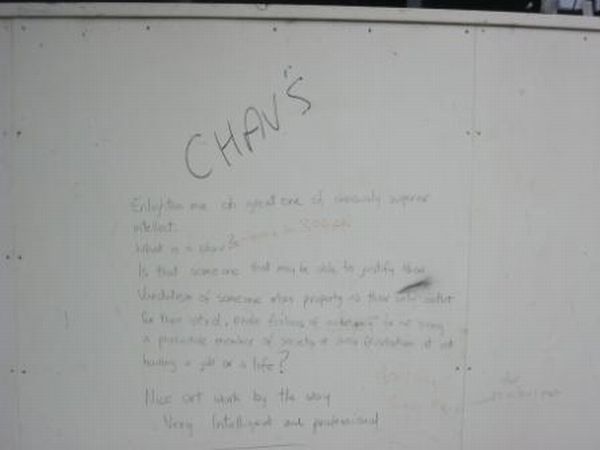 CHAV'S
Enlighten me oh great one of obviously superior
intellect.
What is a chav?
Is that someone that may be able to justify their
Vandalism of someone elses property as their outlet
for their hatred, feelings of to not being
a productive member of society & their frustration at not
having a job or a life?
Nice art work by the way
Very Intelligent and professional